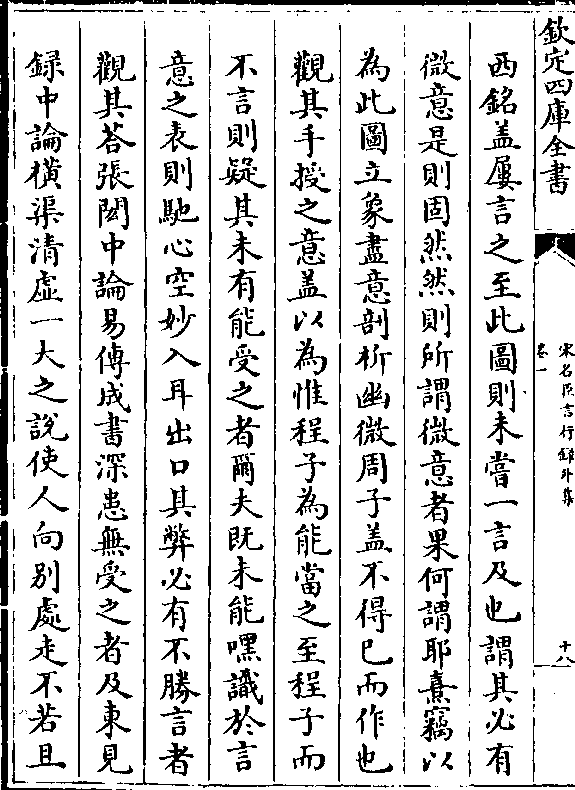 欽定四庫全書
宋名臣言行錄外集
卷一
十八
西銘盖屢言之至此圖則未嘗一言及也謂其必有
微意是則固然然則所謂微意者果何謂耶熹竊以
為此圖立象盡意剖析幽微周子盖不得已而作也
觀其手授之意盖以為惟程子為能當之至程子而
不言則疑其未有能受之者爾夫既未能嘿識於言
意之表則馳心空妙入耳出口其弊必有不勝言者
觀其荅張閎中論易傳成書深患無受之者及東見
録中論横渠清虚一大之說使人向别處走不若且